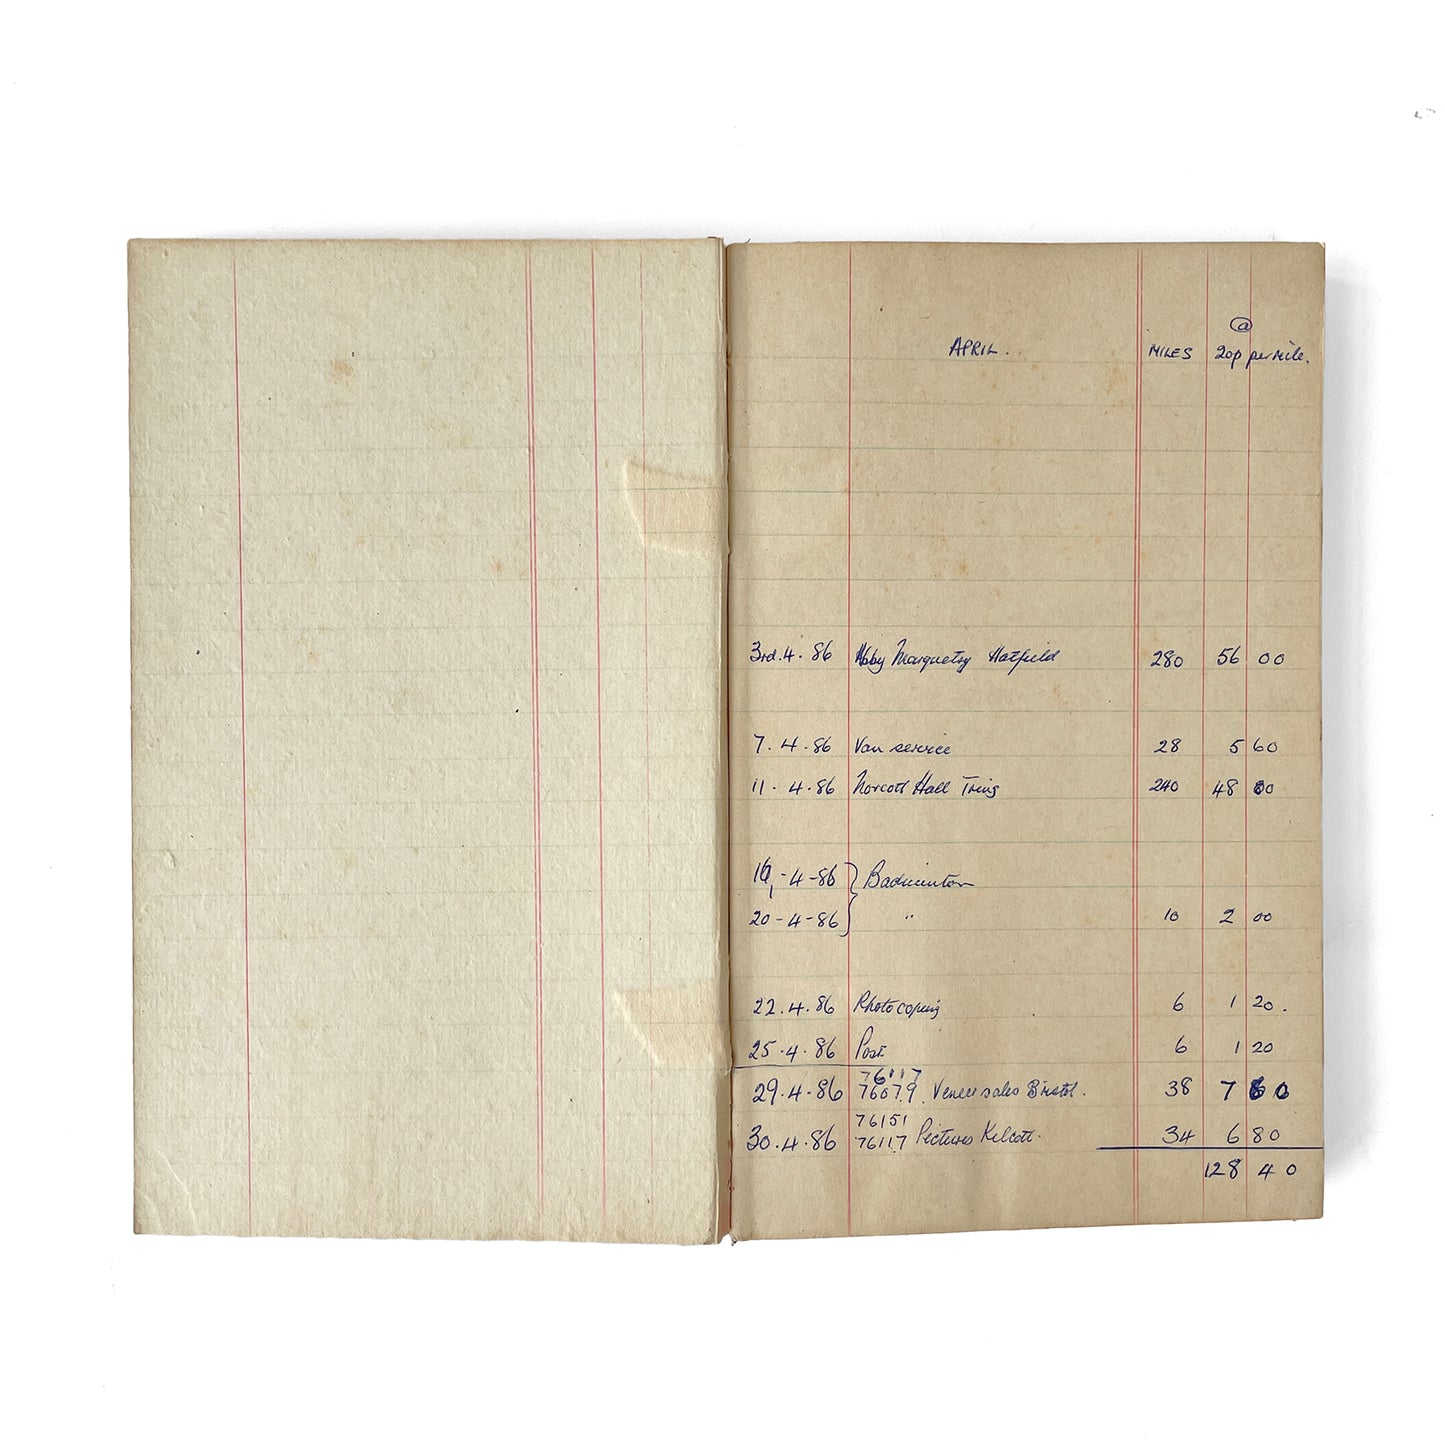 @
APRIL. MILES 20p per Mile.
3rd.4.86 Marquetry Hatfield 280 56 00
7.4.86 Van service 28 5 60
11.4.86 Norcott Hall Tring 240 48 00
16-4-86 } Badminton
20-4-86 } " 10 2 00
22.4.86 Photocopying 6 1 20.
25.4.86 Post 6 1 20
76117
29.4.86 76079. Veneer sales Bristol. 38 7 60
76151
30.4.86 76117 Pictures Kelcott. 34 6 80
128 40